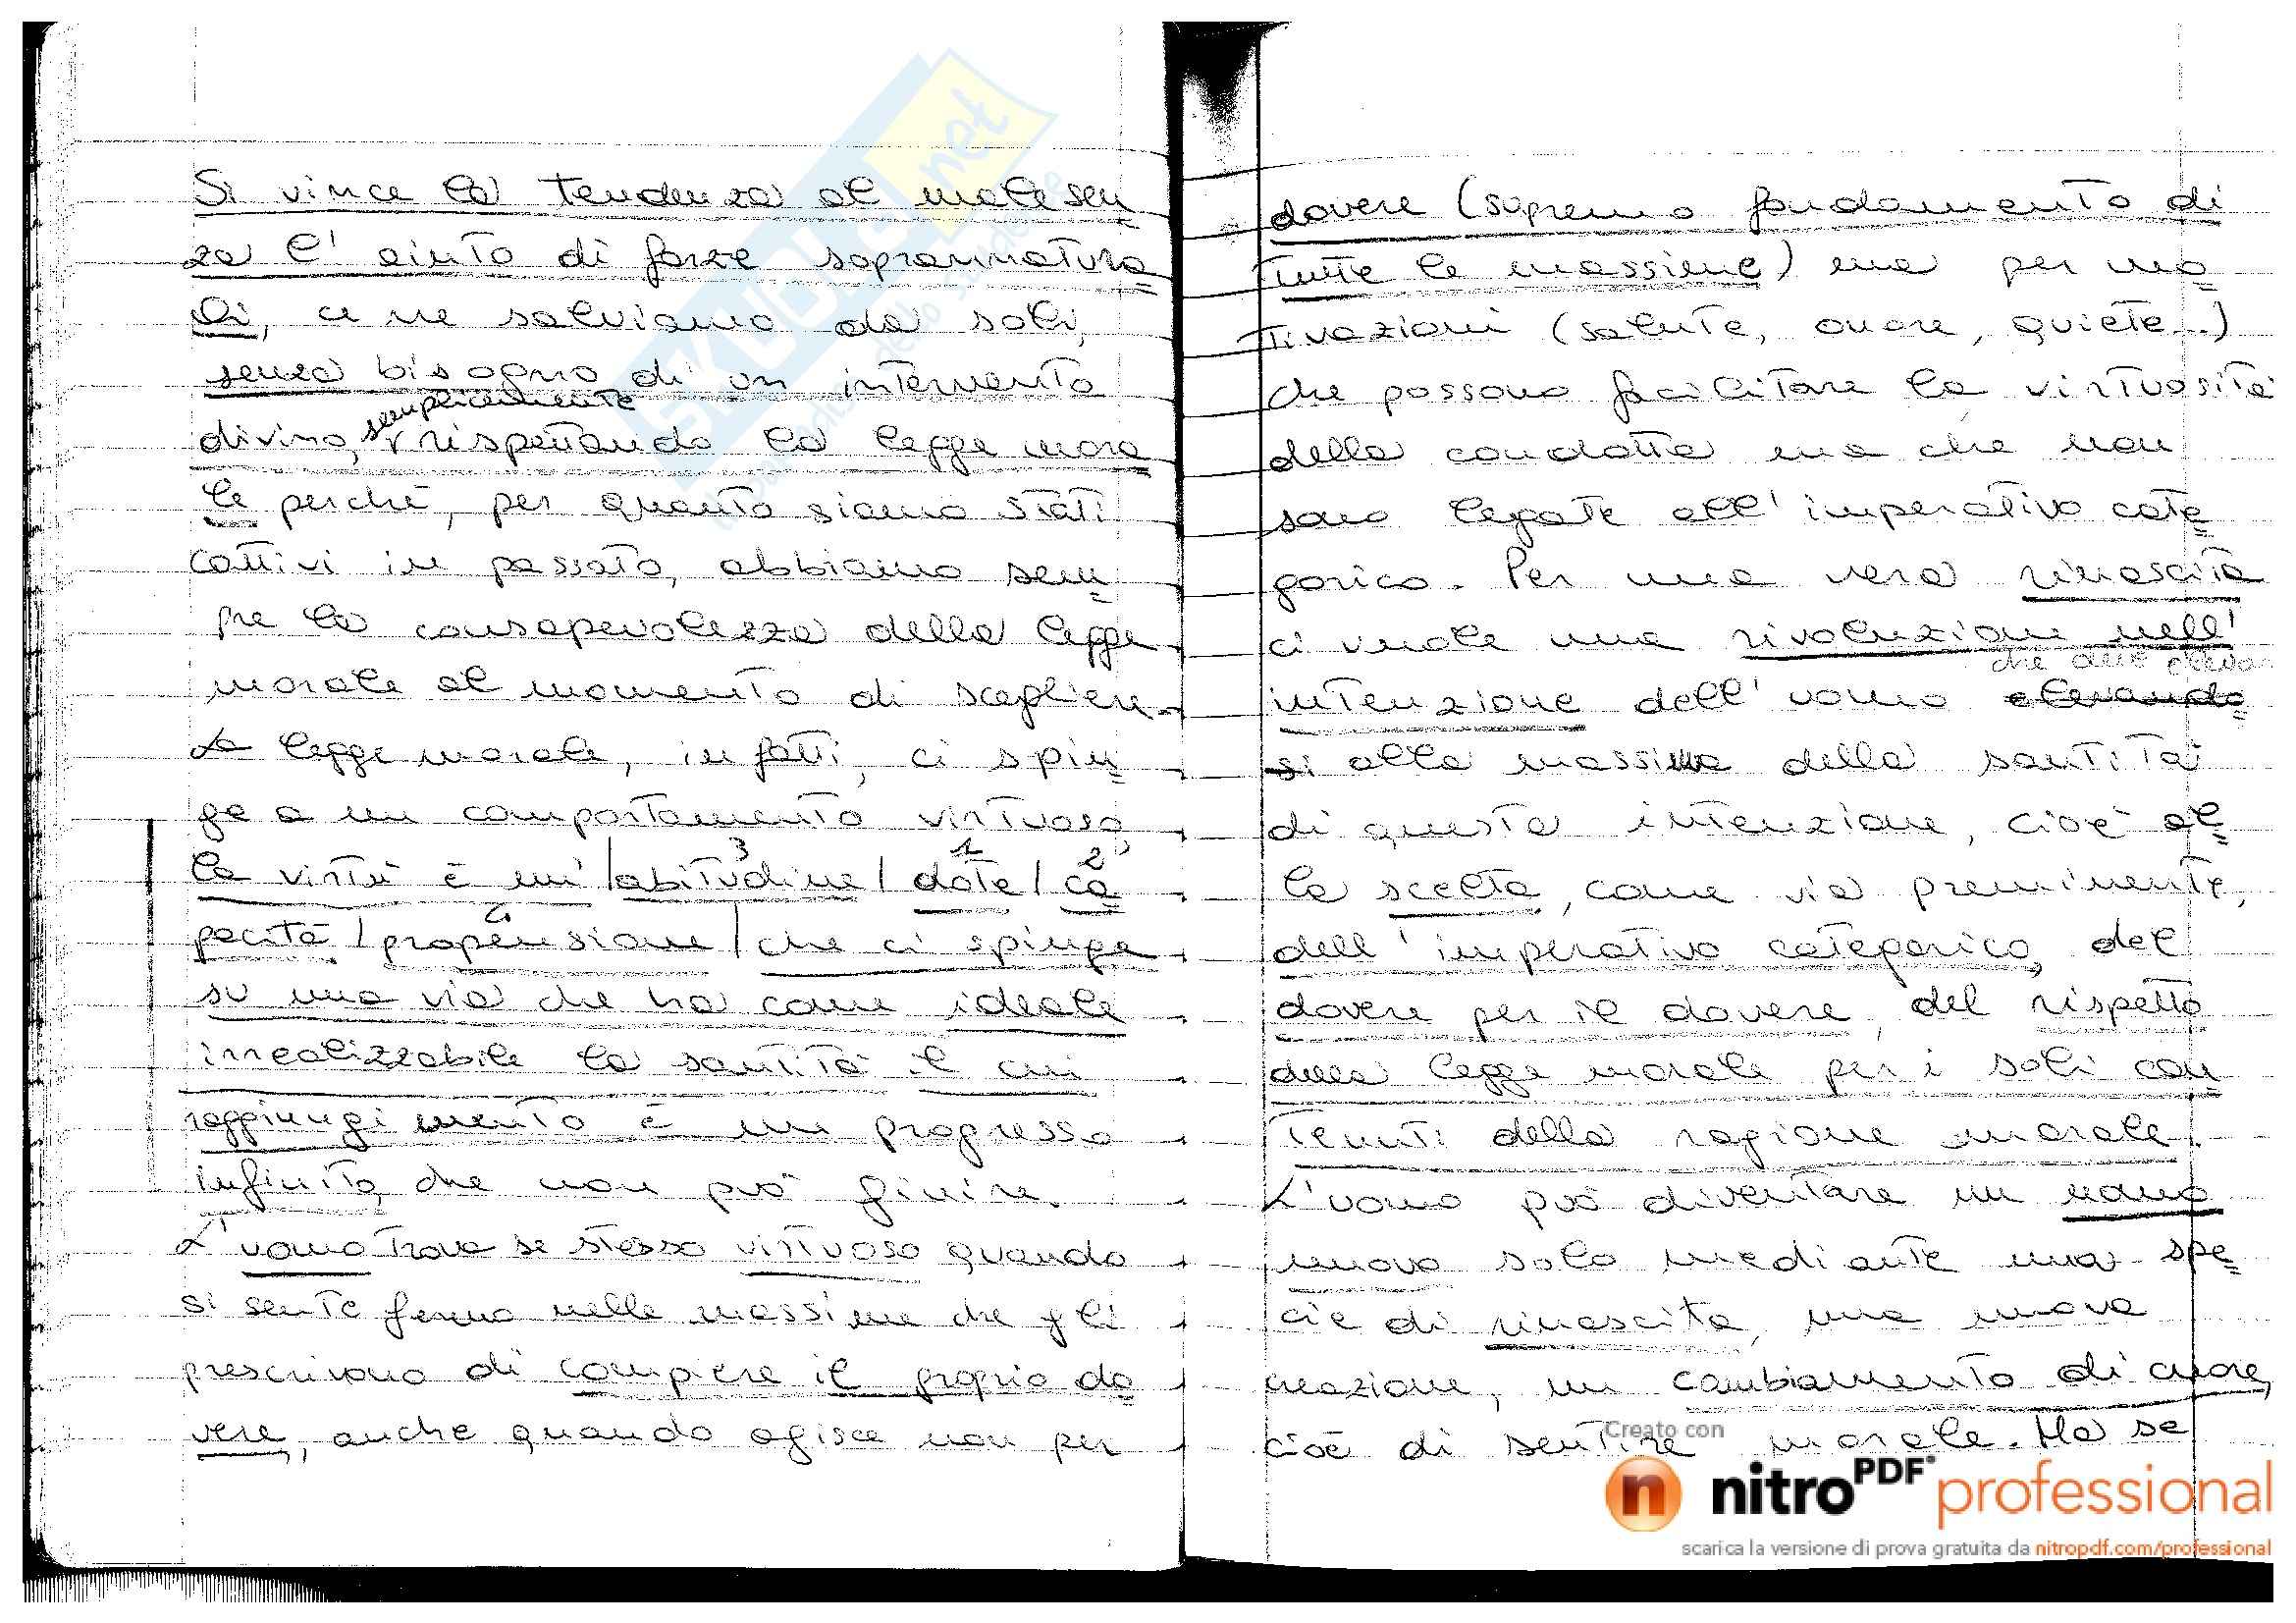 Si vince la tendenza al male sen
za l'aiuto di forze soprannatura
li, ce ne salviamo da soli,
senza bisogno di un intervento
semplicemente
divino, rispettando la legge mora
le perché, per quanto siamo stati
cattivi in passato, abbiamo sem
pre la consapevolezza della legge
morale al momento di scegliere.
La legge morale, infatti, ci spin
ge a un comportamento virtuoso,
3 1 2
la virtù è un'/abitudine/dote/ca
4
pacità/propensione/che ci spinge
su una via che ha come ideale
irrealizzabile la santità il cui
raggiungimento è un progresso
infinito, che non può finire.
L'uomo trova se stesso virtuoso quando
si sente fermo nelle massime che gli
prescrivono di compiere il proprio do
vere, anche quando agisce non per
dovere (supremo fondamento di
tutte le massime) ma per mo
tivazioni (salute, onore, quiete..)
che possono facilitare la virtuosità
della condotta ma che non
sono legate all'imperativo cate
gorico. Per una vera rinascita
ci vuole una rivoluzione nell'
che deve elevar
intenzione dell'uomo elevando
si alla massima della santità
di questa intenzione, cioè al
la scelta, come via preminente,
dell'imperativo categorico, del
dovere per il dovere, del rispetto
della legge morale per i soli con
tenuti della ragione morale.
L'uomo può diventare un uomo
nuovo solo mediante una spe
cie di rinascita, una nuova
creazione, un cambiamento di cuore,
cioè di sentire morale. Ma se
Creato con
nitroPDF professional
scarica la versione di prova gratuita da nitropdf.com/professional